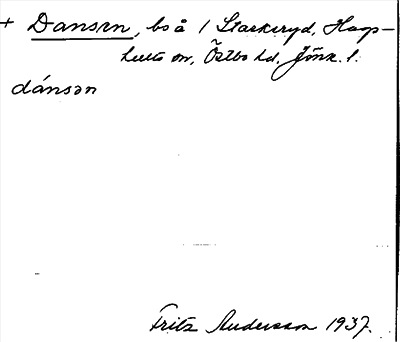 + Dansen, bs å / Starkeryd, Hag-
hults sn, Östbo hd, Jönk. l.
dánsən
Fritz Andersson 1937.